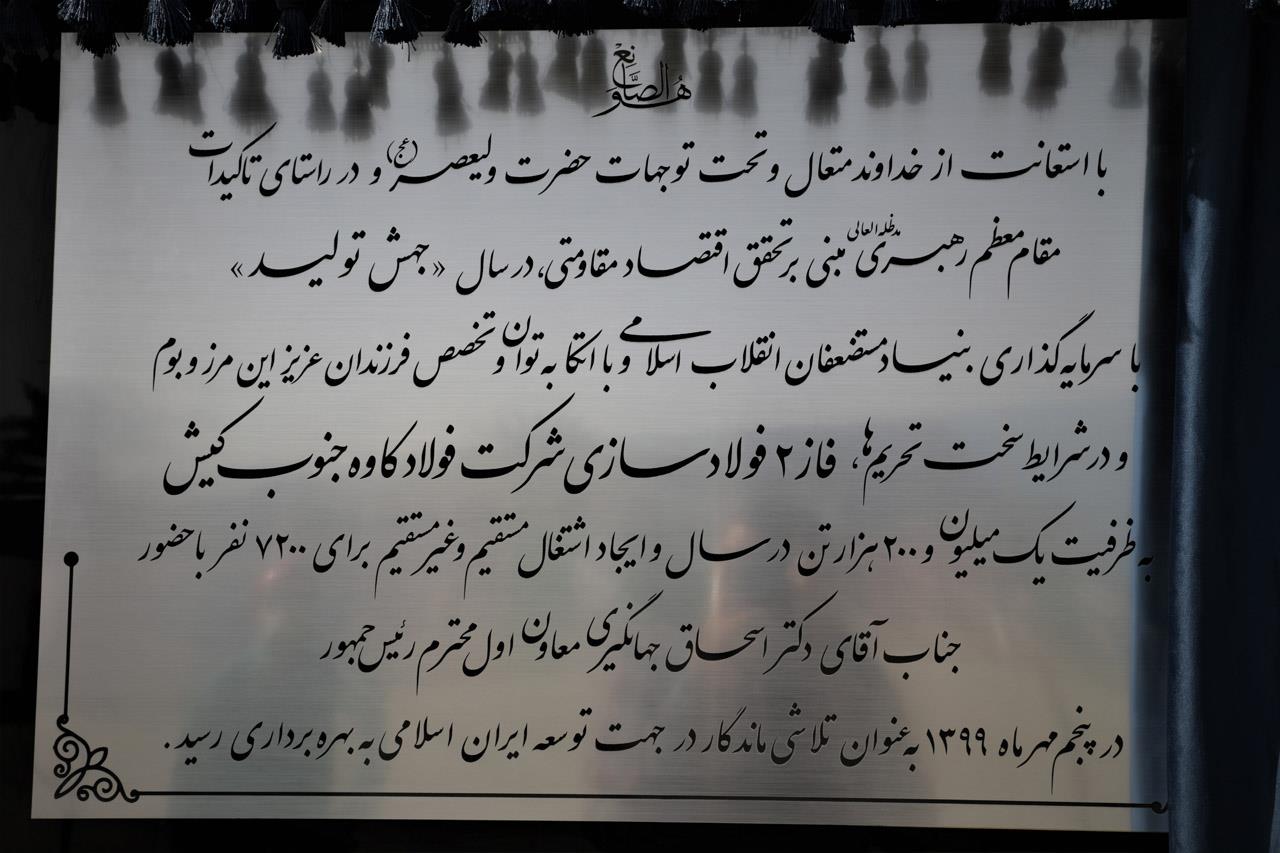 هو الصانع
با استعانت از خداوند متعال و تحت توجهات حضرت ولیعصر (عج) و در راستای تاکیدات
مقام معظم رهبری مدظله العالی مبنی بر تحقق اقتصاد مقاومتی، در سال «جهش تولید»
با سرمایه گذاری بنیاد مستضعفان انقلاب اسلامی و با اتکا به توان و تخصص فرزندان عزیز این مرز و بوم
و در شرایط سخت تحریم ها، فاز ۲ فولاد سازی شرکت فولاد کاوه جنوب کیش
به ظرفیت یک میلیون و ۲۰۰ هزار تن در سال و ایجاد اشتغال مستقیم و غیر مستقیم برای ۷۲۰۰ نفر با حضور
جناب آقای دکتر اسحاق جهانگیری معاون اول محترم رئیس جمهور
در پنجم مهر ماه ۱۳۹۹ به عنوان تلاشی ماندگار در جهت توسعه ایران اسلامی به بهره برداری رسید.